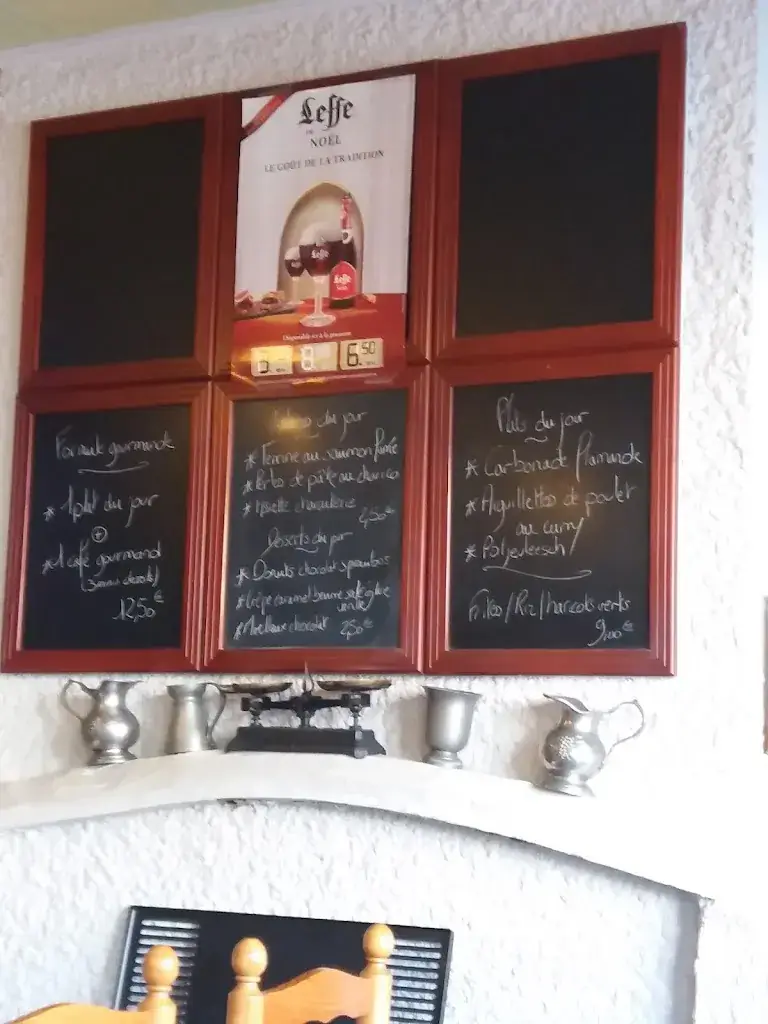 Leffe
DE
NOËL
LE GOÛT DE LA TRADITION
Leffe
Leffe
Disponible ici à la pression
3
8
6,50
Formule gourmande
* 1 plat du jour
+
* 1 café gourmand
12,50€
du jour
* Terrine au saumon fumé
* de pâté au chorizo
* Assiette charcuterie
2,50€
Desserts du jour
* Donuts chocolat
* Crêpe caramel beurre salé glace
vanille
* Moelleux chocolat 2,50€
Plats du jour
* Carbonade flamande
* Aiguillettes de poulet
au curry
* Potjevleesch
Frites/Riz/haricots verts
9,00€